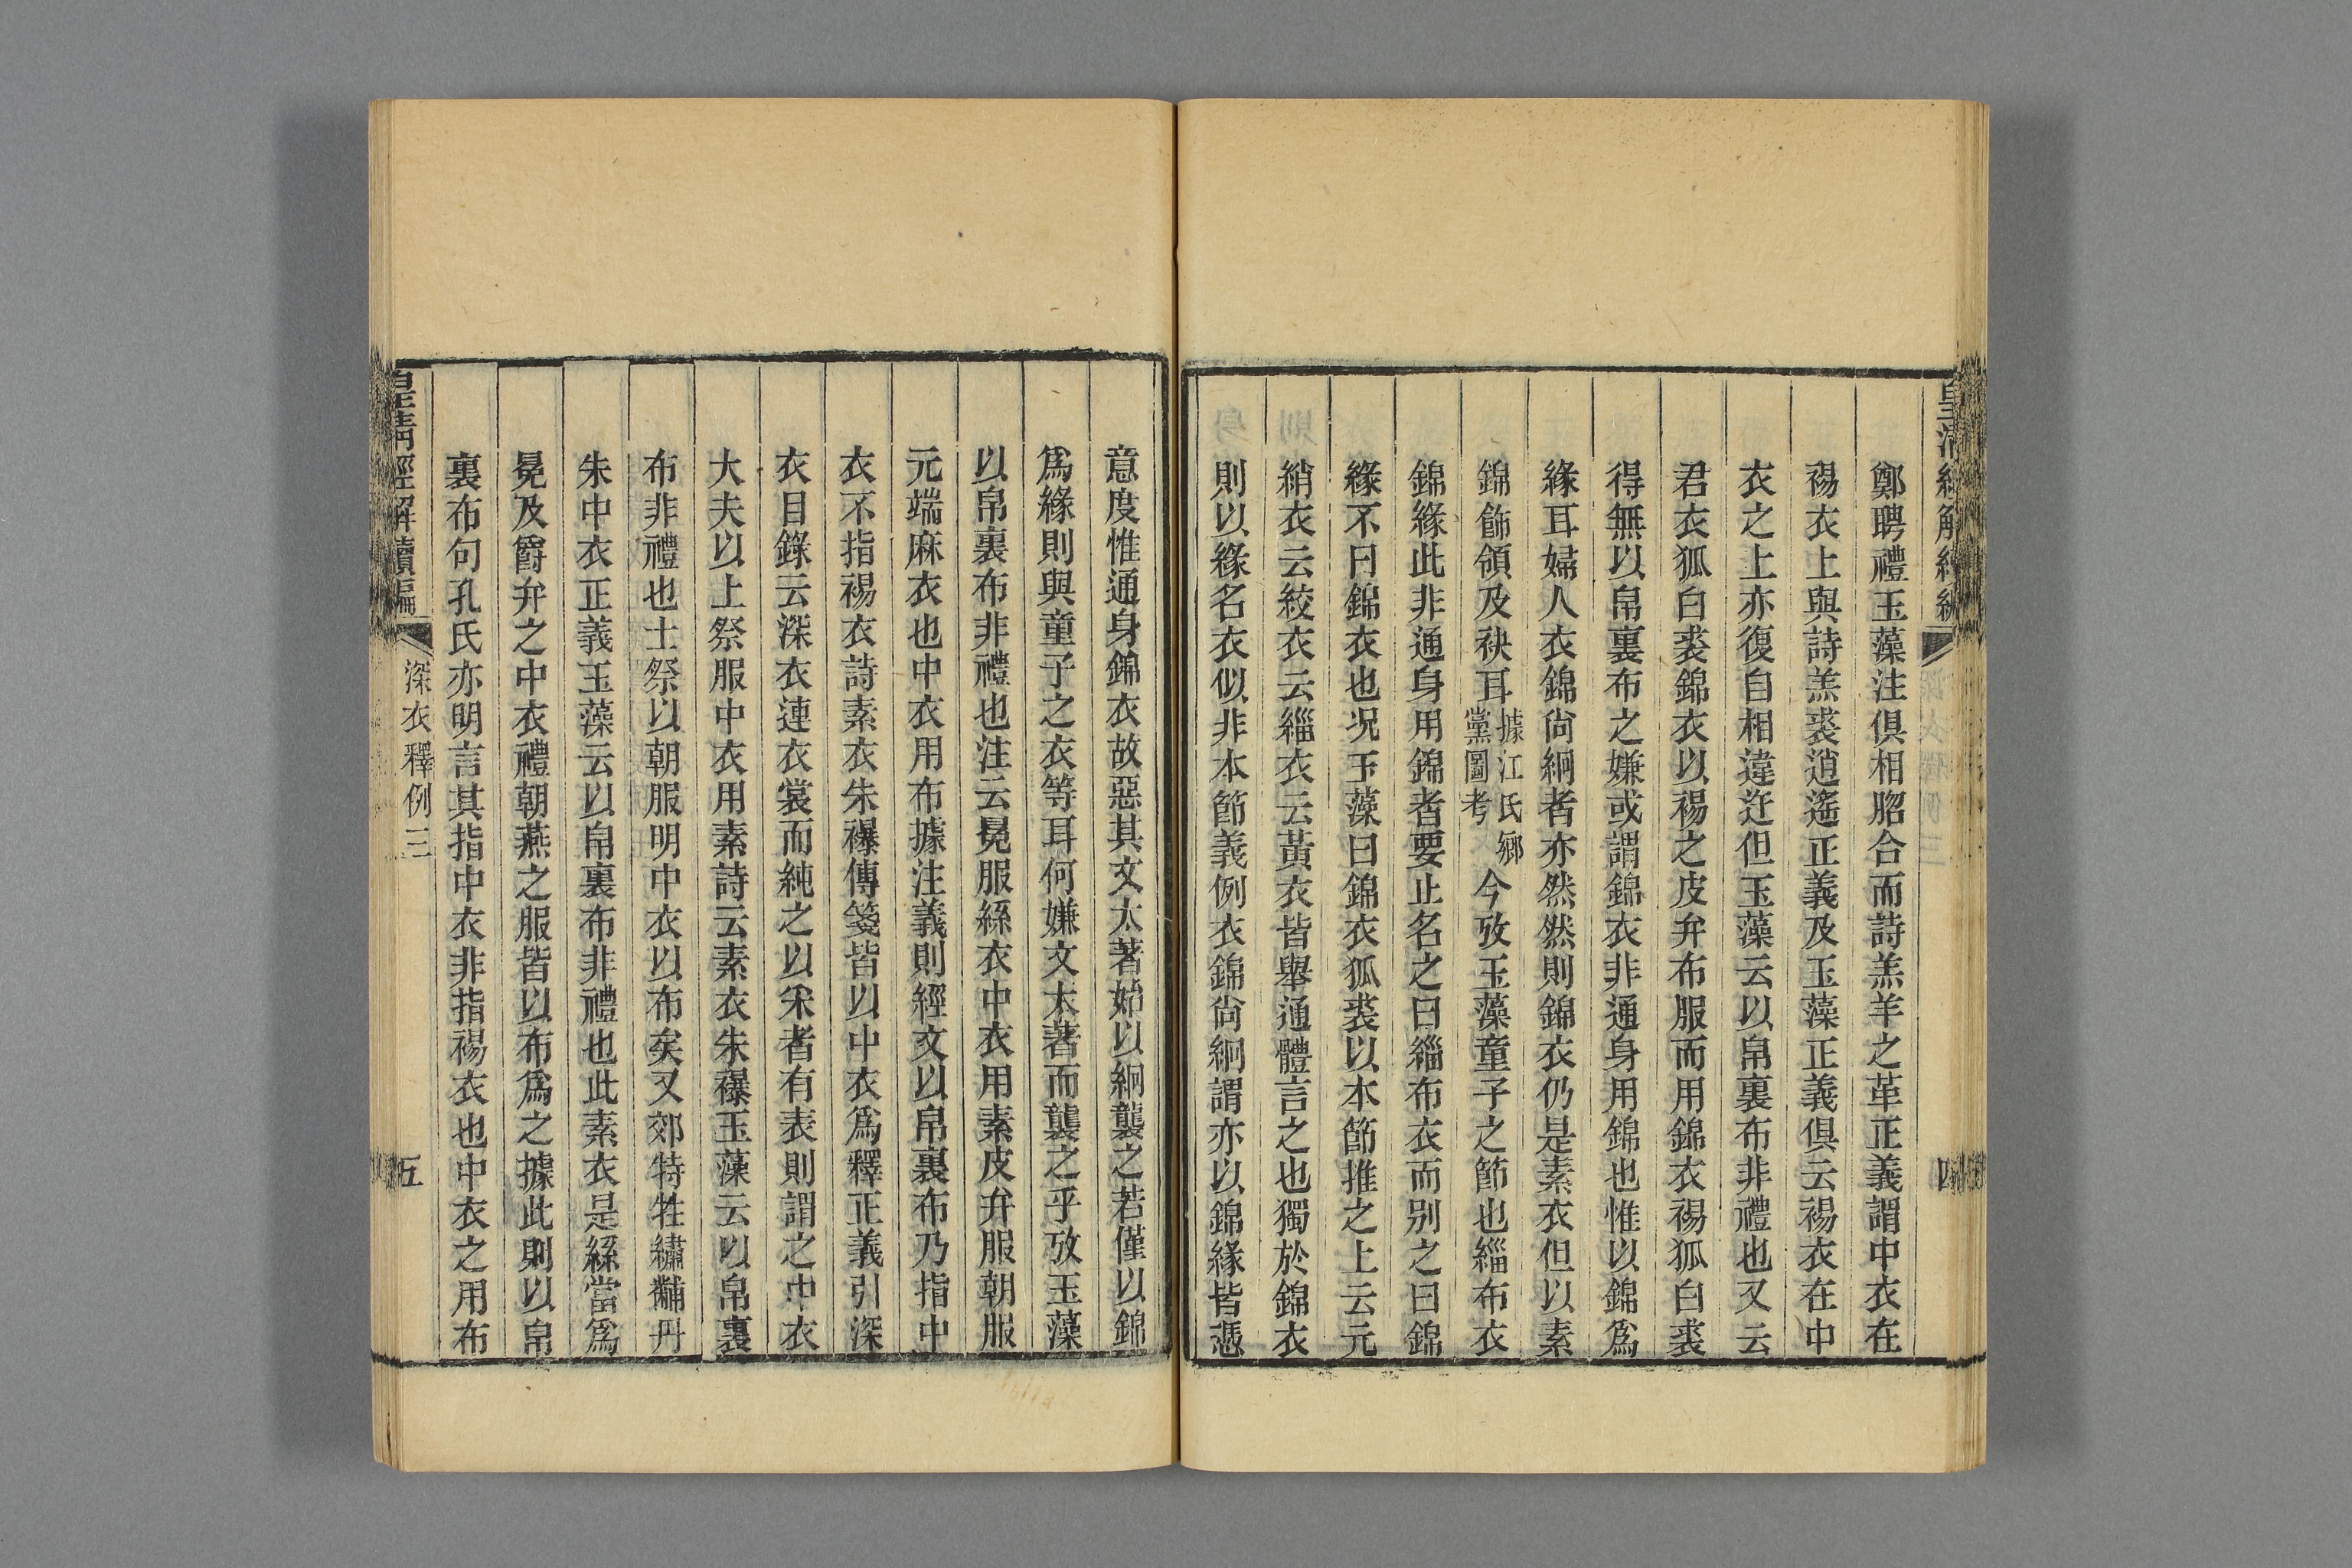 皇清經解續編
四
鄭聘禮玉藻注俱相脗合而詩羔羊之革正義謂中衣在
裼衣上與詩羔裘逍遙正義及玉藻正義俱云裼衣在中
衣之上亦復自相違迕但玉藻云以帛裏布非禮也又云
君衣狐白裘錦衣以裼之皮弁布服而用錦衣裼狐白裘
得無以帛裏布之嫌或謂錦衣非通身用錦也惟以錦爲
緣耳婦人衣錦尙絅者亦然然則錦衣仍是素衣但以素
錦飾領及袂耳據江氏鄉黨圖考今攷玉藻童子之節也緇布衣
錦緣此非通身用錦者要止名之曰緇布衣而别之曰錦
緣不曰錦衣也况玉藻曰錦衣狐裘以本節推之上云元
綃衣云絞衣云緇衣云黃衣皆舉通體言之也獨於錦衣
則以緣名衣似非本節義例衣錦尙絅謂亦以錦緣皆憑
意度惟通身錦衣故惡其文太著始以絅襲之若僅以錦
爲緣則與童子之衣等耳何嫌文太著而襲之乎攷玉藻
以帛裏布非禮也注云冕服絲衣中衣用素皮弁服朝服
元端麻衣也中衣用布據注義則經文以帛裏布乃指中
衣不指裼衣詩素衣衣朱襮傳箋皆以中衣爲釋正義引深
衣目錄云深衣連衣裳而純之以采者有表則謂之中衣
大夫以上祭服中衣用素詩云素衣朱襮玉藻云以帛裏
布非禮也士祭以朝服明中衣以布矣又郊特牲繡黼丹
朱中衣正義玉藻云以帛裏布非禮也此素衣是絲當爲
冕及爵弁之中衣禮朝燕之服皆以布爲之據此則以帛
裏布句孔氏亦明言其指中衣非指裼衣也中衣之用布
皇清經解續編
深衣釋例三
五